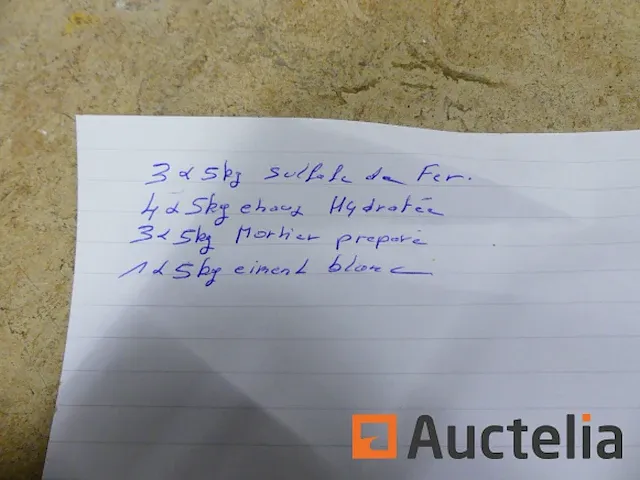 3 x 5kg Sulfate de Fer.
4 x 5kg chaux Hydratée
3 x 5kg Mortier preparé
1 x 5kg ciment blanc
Auctelia